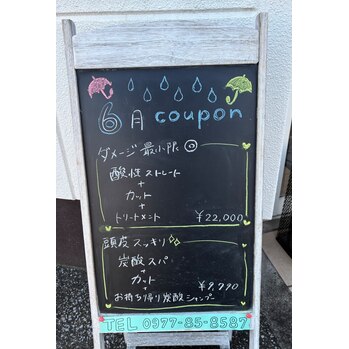 6月 coupon
ダメージ最小限◎
酸性ストレート
+
カット
+
トリートメント ¥22,000
頭皮スッキリ
炭酸スパ
+
カット
+
お持ち帰り炭酸シャンプー ¥9,790
TEL 0977-85-8587